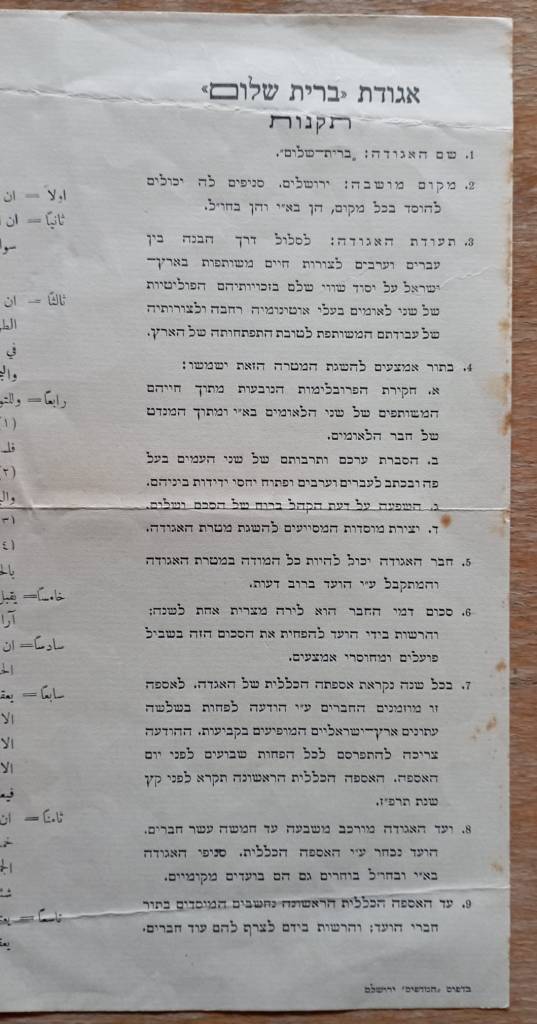 אגודת «ברית שלום»
תקנות
1. שם האגודה: „ברית־שלום״.
2. מקום מושבה: ירושלים. סניפים לה יכולים
להוסד בכל מקום, הן בא״י והן בחו״ל.
3. תעודת האגודה: לסלול דרך הבנה בין
עברים וערבים לצורות חיים משותפות בארץ־
ישראל על יסוד שווי שלם בזכויותיהם הפוליטיות
של שני לאומים בעלי אוטונומיה רחבה ולצורותיה
של עבודתם המשותפת לטובת התפתחותה של הארץ.
4. בתור אמצעים להשגת המטרה הזאת ישמשו:
א. חקירת הפרובלימות הנובעות מתוך חייהם
המשותפים של שני הלאומים בא״י ומתוך המנדט
של חבר הלאומים.
ב. הסברת ערכם ותרבותם של שני העמים בעל
פה ובכתב לעברים וערבים ופתוח יחסי ידידות ביניהם.
ג. השפעה על דעת הקהל ברוח של הסכם ושלום.
ד. יצירת מוסדות המסייעים להשגת מטרת האגודה.
5. חבר האגודה יכול להיות כל המודה במטרת האגודה
והמתקבל ע״י הועד ברוב דעות.
6. סכום דמי החבר הוא לירה מצרית אחת לשנה;
והרשות בידי הועד להפחית את הסכום הזה בשביל
פועלים ומחוסרי אמצעים.
7. בכל שנה נקראת אספתה הכללית של האגדה. לאספה
זו מוזמנים החברים ע״י הודעה לפחות בשלשה
עתונים ארץ־ישראליים המופיעים בקביעות. ההודעה
צריכה להתפרסם לכל הפחות שבועים לפני יום
האספה. האספה הכללית הראשונה תקרא לפני קץ
שנת תרפ״ז.
8. ועד האגודה מורכב משבעה עד חמשה עשר חברים.
הועד נבחר ע״י האספה הכללית. סניפי האגודה
בא״י ובחו״ל בוחרים גם הם בועדים מקומיים.
9. עד האספה הכללית הראשונה נחשבים המוסדים בתור
חברי הועד; והרשות בידם לצרף להם עוד חברים.
בדפוס «המדפיס» ירושלם
اولاً = ان
ثانياً = ان
سوا
ثالثاً = ان
الطر
في
رابعاً = وللتو
(١)
(٢)
خامساً = يقبل
آرا
سادساً = ان
سابعاً = يعقد
الا
الا
الا
ثامناً = ان
تاسعاً =